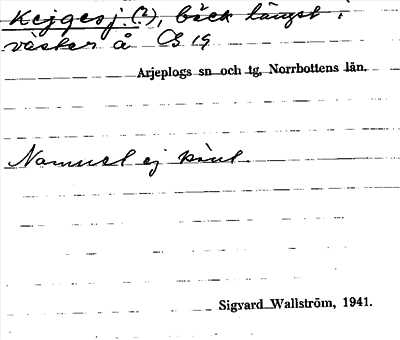 Kejgesj. (?), bäck längst i
väster å CB 19
Arjeplogs sn och tg, Norrbottens län.
Namnet ej känt.
Sigvard Wallström, 1941.